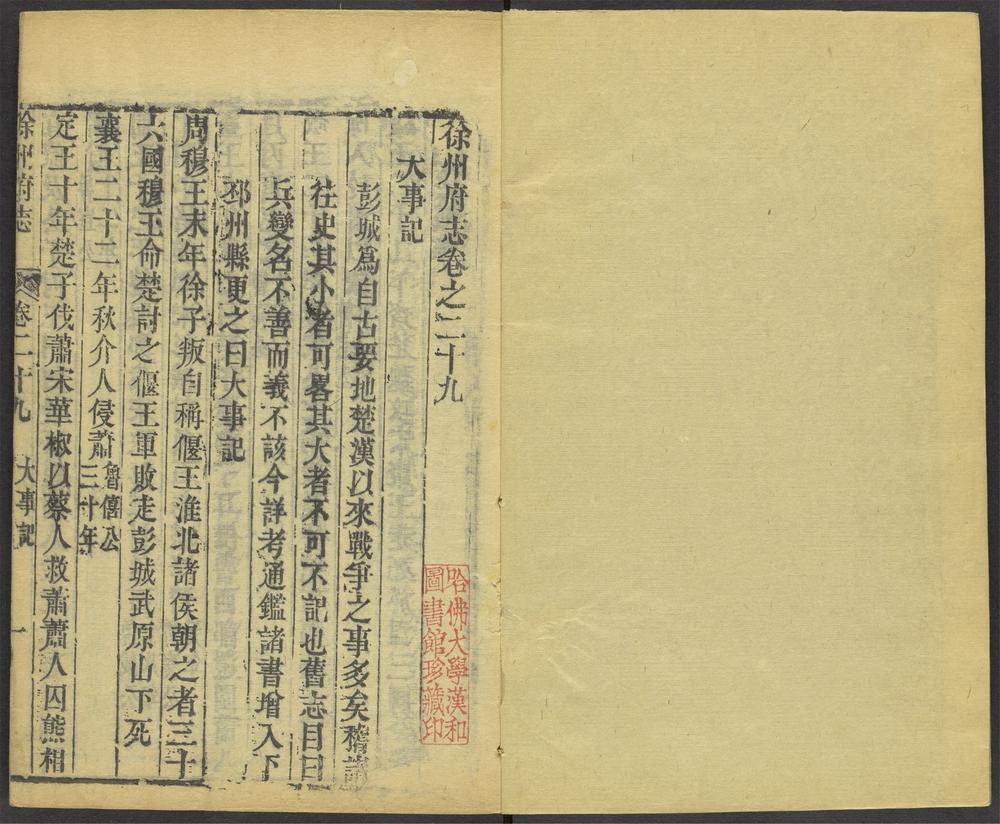 徐州府志卷之二十九
大事記
彭城爲自古要地楚漢以來戰爭之事多矣稽諸
往史其小者可畧其大者不可不記也舊志目曰
兵變名不善而義不該今詳考通鑑諸書增入下
邳州縣更之曰大事記
周穆王末年徐子叛自稱偃王淮北諸侯朝之者三十
六國穆王命楚討之偃王軍敗走彭城武原山下死
襄王二十二年秋介人侵蕭魯僖公三十年
定王十年楚子伐蕭宋華椒以蔡人救蕭蕭人囚熊相
徐州府志 卷二十九 大事記 一
哈佛大學漢和
圖書館珍藏印